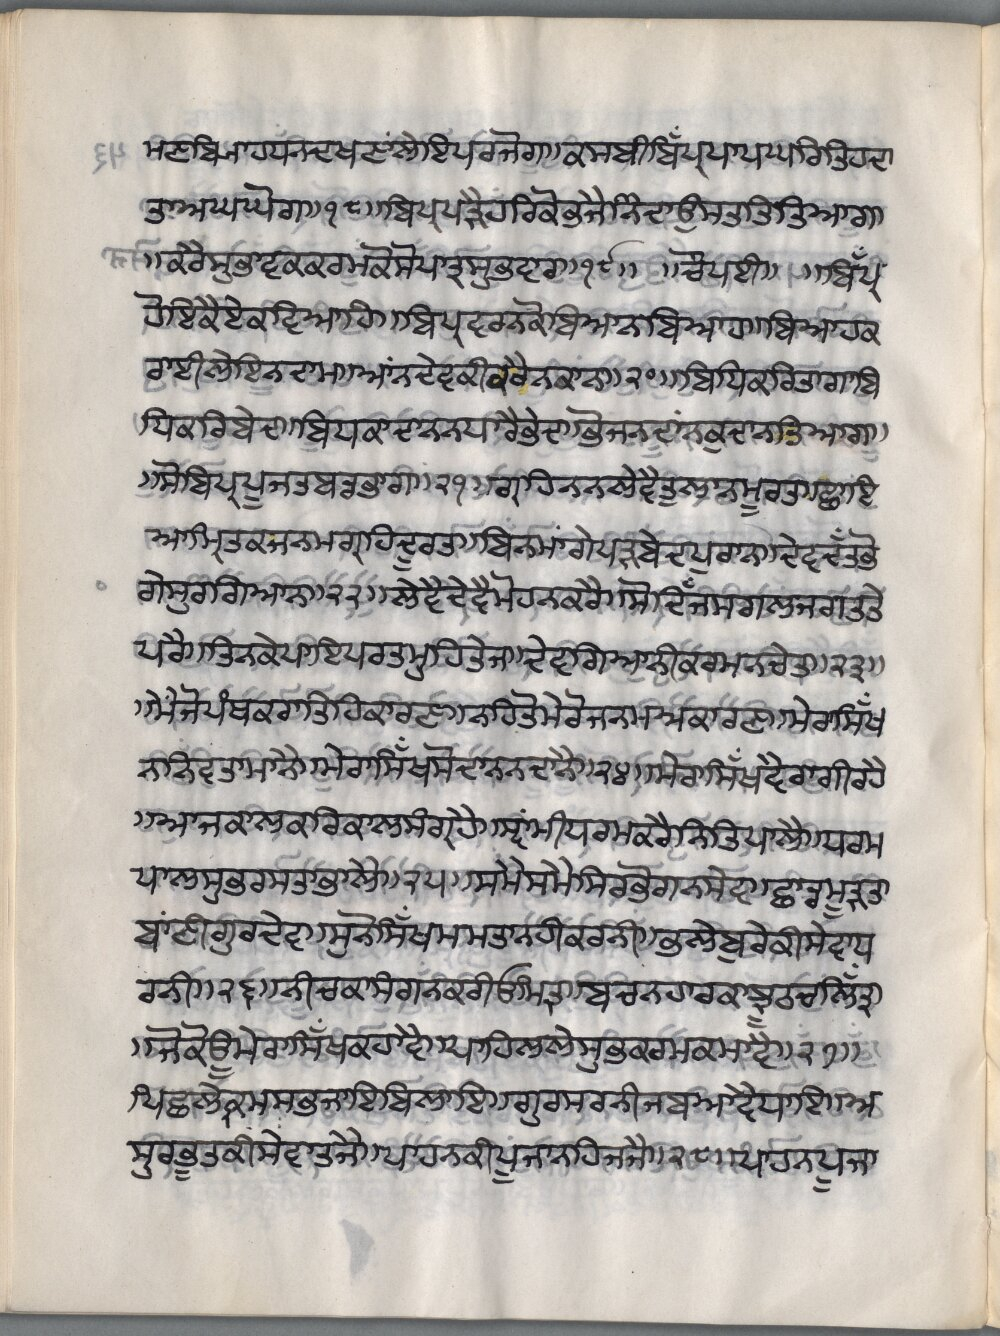 ਮਣਬਿਨਾਹਧਨਦਖਣਾਂਲੇਇਪਰਜੋਗ॥ਕਸਬੀਬਿੱਪ੍ਰਪਾਪਘਰਿਤਿਹਦਾ
ਤਾਅਘਘੋਗ॥੧੮॥ਬਿਪ੍ਰਪੜੈਹਰਿਕੋਭਜੈਨਿੰਦਾਉਸਤਤਿਤਿਆਗ
॥ਕਰੈਸੁਭਾਵਕਕਰਮਕੋਸੋਪਾਤ੍ਰਸੁਭਵਾਗ॥੧੯॥ ॥ਚੌਪਈ॥ ॥ਬਿੱਪ੍ਰ
ਹੋਇਕੈਏਕਵਿਆਹਿ॥ਬਿਪ੍ਰਵਰਨਕੋਬਿਆਨਬਿਆਹ॥ਬਿਆਹਕ
ਰਾਈਲੇਇਨਦਾਮ॥ਆਂਨਦੇਵਕੀਕਰੈਨਕਾਂਨ॥੨੦॥ਬਿਧਿਕਰਿਤਾਗਾਬਿ
ਧਿਕਰਿਬੇਦ॥ਬਿਧਕਾਦਾਨਨਪਾਰੈਭੇਦ॥ਭੋਜਨਦਾਂਨਕੁਦਾਨਤਿਆਗ॥
॥ਸੋਬਿਪ੍ਰਪੂਜਤਬਡਭਾਗ॥੨੧॥ਗ੍ਰਹਿਨਨਲੇਵੈਤੁਲਾਨਮੂਰਤ॥ਛਾਇ
ਆਮ੍ਰਿਤਕਜਨਮਗ੍ਰਹਿਦੂਰਤ॥ਬਿੰਨਮਾਂਗੇਪੜਬੇਦਪੁਰਾਨ॥ਦੇਵਦੱਤਭੋ
ਗੇਸੁਰਗਿਆਨ॥੨੨॥ਲੇਵੈਦੇਵੈਮੋਹਨਕਰੈ॥ਸੋਦਿੱਜਸਗਲਜਗਤਤੇ
ਪਰੈ॥ਤਿਨਕੇਪਾਇਪਰਤਮੁਹਿਤੇਜ॥ਦੇਵਗਿਆਨੀਕਰਮਨਚੇਤ॥੨੩॥
॥ਮੈਜੋਪੰਥਕਰਾਤਿਹਿਕਾਰਣ॥ਨਹਿਤੋਮੇਰੋਜਨਮਅਕਾਰਣ॥ਮੇਰਾਸਿੱਖ
ਨਨਿੰਵਤਾਮਾਨੈ॥ਮੇਰਾਸਿੱਖਸੋਦਾਨਨਦਾਨੈ॥੨੪॥ਮੇਰਾਸਿੱਖਵੈਰਾਗੀਰਹੈ
॥ਆਜਕਾਲਕਰਿਕਾਲਸੰਗ੍ਰਹੈ॥ਸ੍ਵਾਂਮੀਧਰਮਕਰੈਨਿਤਿਪਾਲੈ॥ਧਰਮ
ਪਾਲਸੁਭਰਸਤਾਭਾਲੈ॥੨੫॥ਸਮੈਸਮੈਸਿਰਭੋਗਨਸੇਵ॥ਛਾਡਮੂੜਤਾ
ਬਾਂਣੀਗੁਰਦੇਵ॥ਸੁਨੋਸਿੱਖਮਮਤਾਨਹੀਕਰਨੀ॥ਭਲੇਬੁਰੇਕੀਸੇਵਾਧ
ਰਨੀ॥੨੬॥ਨੀਚਕਾਸੰਗਨਕਰੀਓਮਿਤ੍ਰ॥ਬਿਚਨਹਾਰਕਾਝੂਠਚਲਿੱਤ੍ਰ
॥ਜੋਕੋਊਮੇਰਾਸਿੱਖਕਹਾਵੈ॥ਪਹਿਲਲੇਸੁਭਕਰਮਕਮਾਵੈ॥੨੭॥
ਪਿਛਲੇਕ੍ਰਮਸਭਜਾਇਬਿਲਾਇ॥ਗੁਰਸਰਨੀਜਬਆਵੈਧਾਇ॥ਅ
ਸੁਰਭੂਤਕੀਸੇਵਾਤਜੈ॥ਪਾਹਨਕੀਪੂਜਾਨਹਿਜਜੈ॥੨੮॥ਪਾਹਨਪੂਜਾ